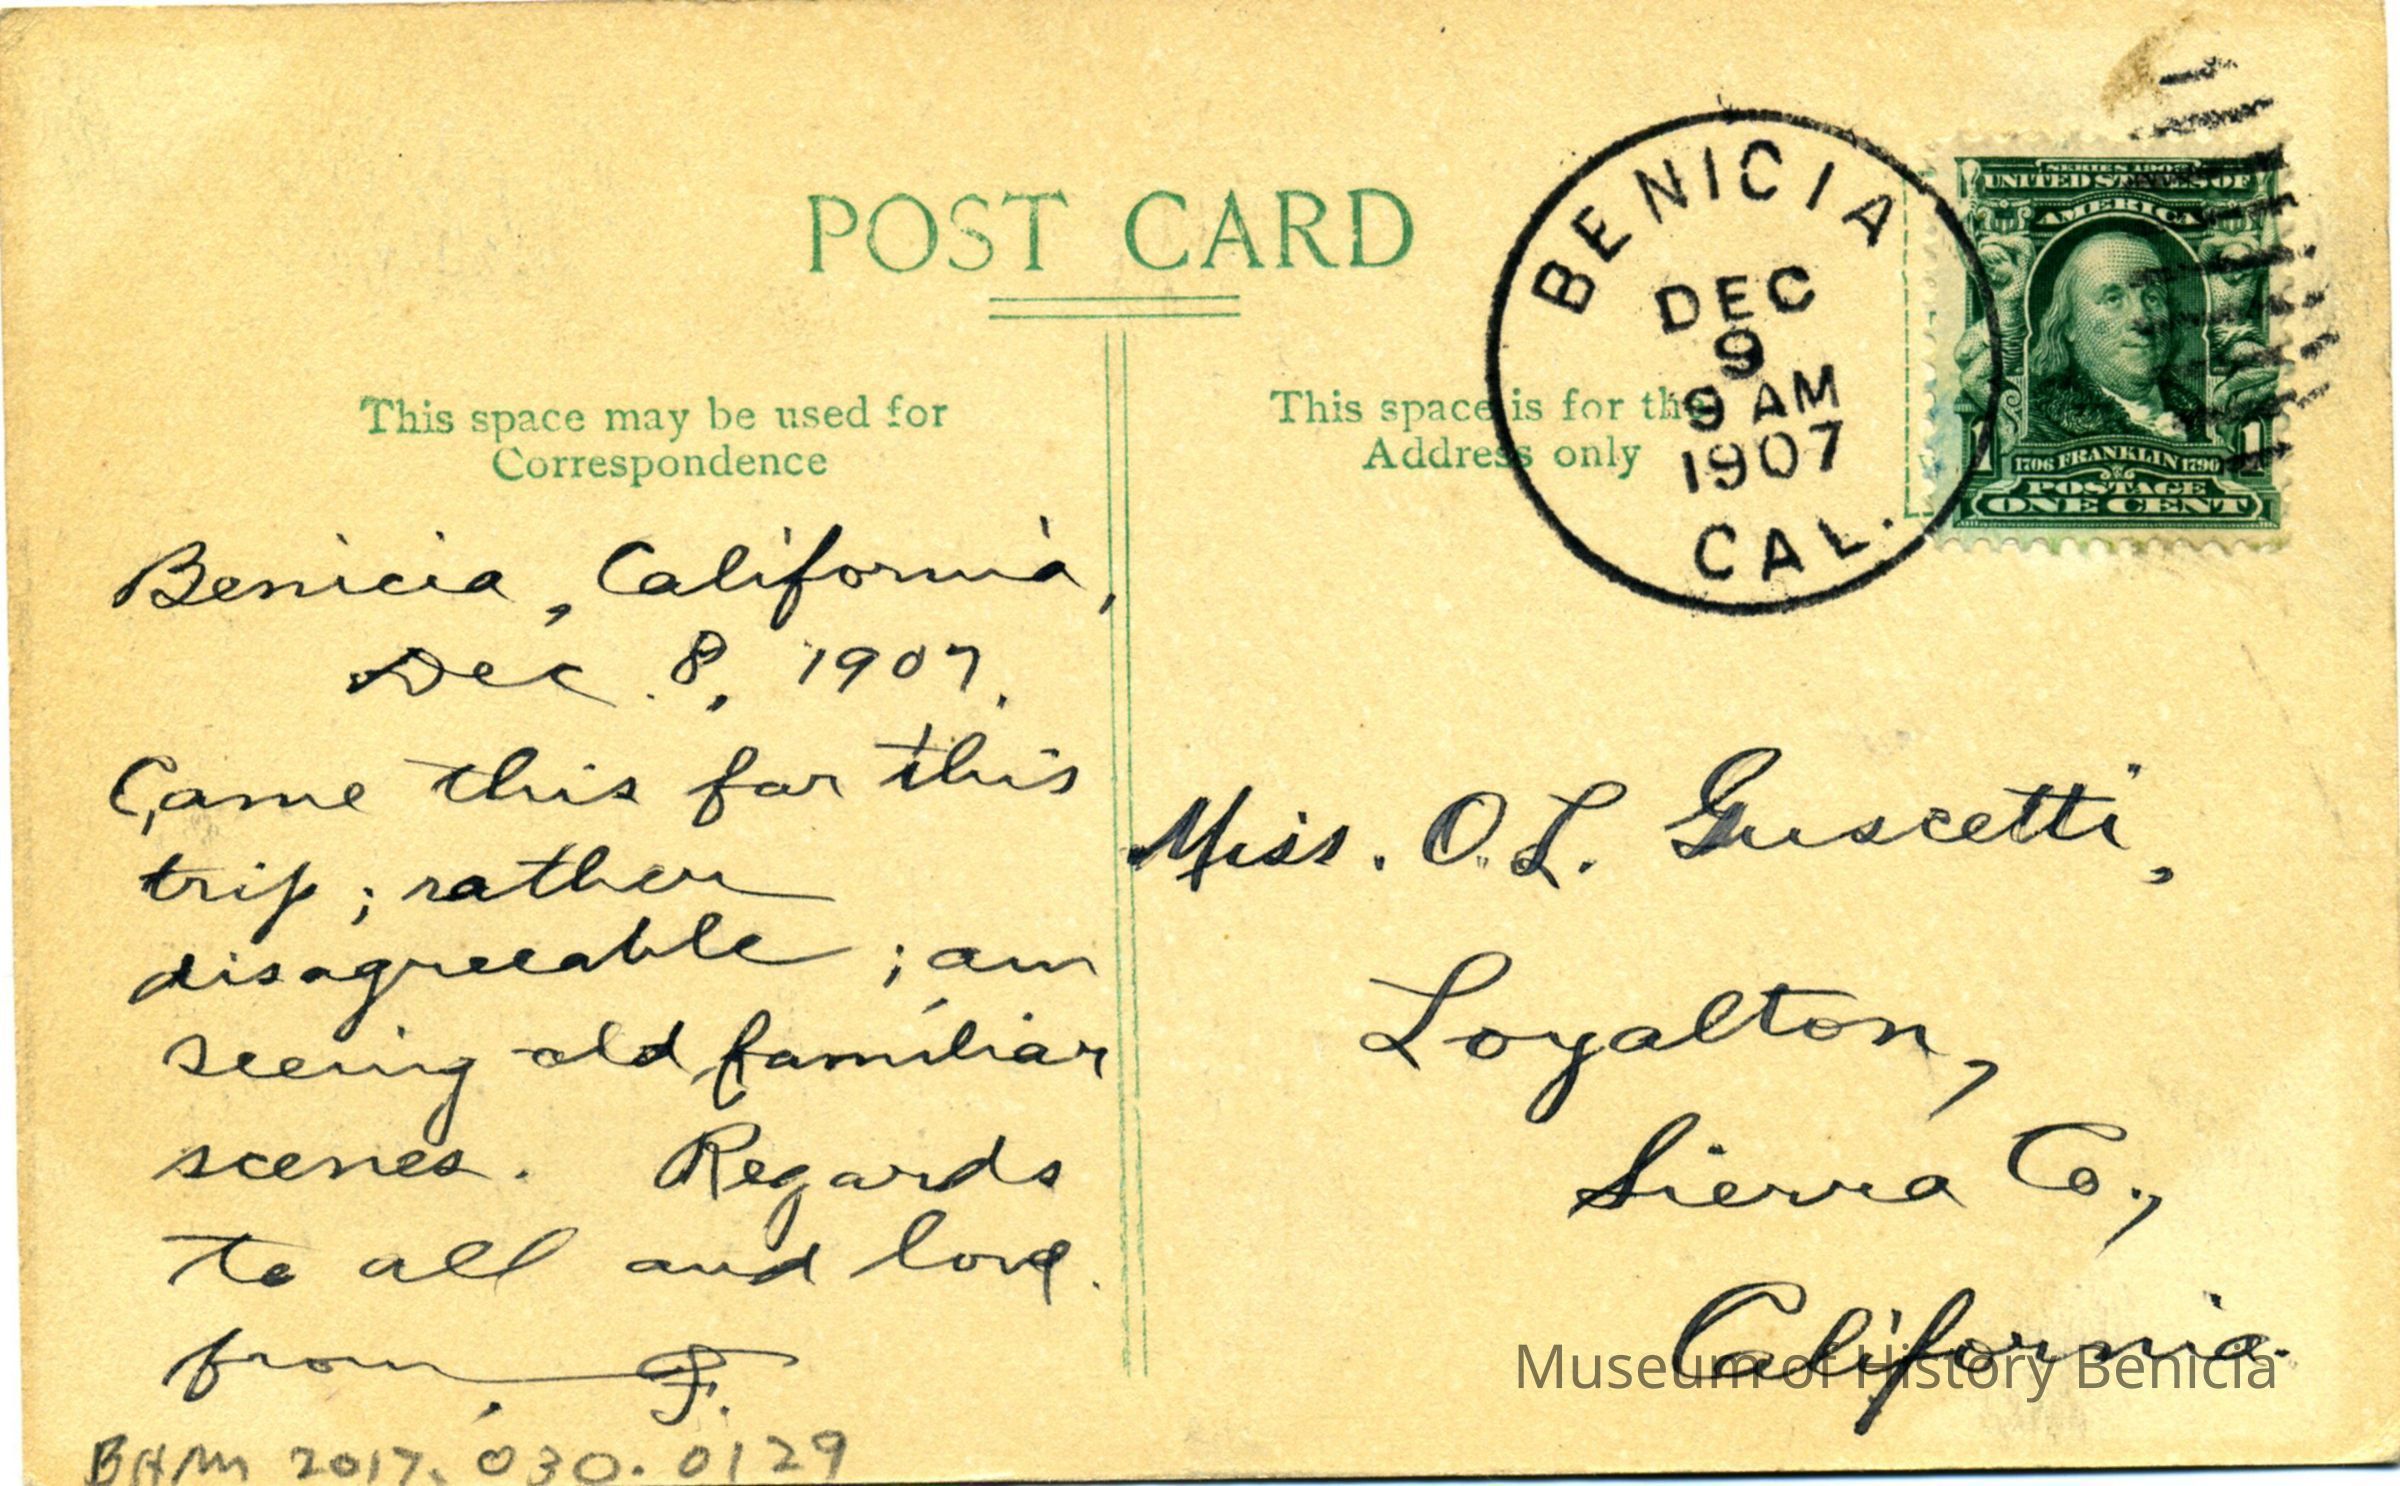 POST CARD
This space may be used for
Correspondence
This space is for the
Address only
BENICIA
DEC
9
9 AM
1907
CAL.
SERIES 1902
UNITED STATES OF
AMERICA
1706 FRANKLIN 1790
1 1
POSTAGE
ONE CENT
Benicia, California,
Dec. 8, 1907.
Came this far this
trip; rather
disagreeable; am
seeing old familiar
scenes. Regards
to all and love.
from, F.
Miss. O. L. Guscetti,
Loyalton,
Sierra Co.,
California.
Museum of History Benicia
BHM 2017.030.0129